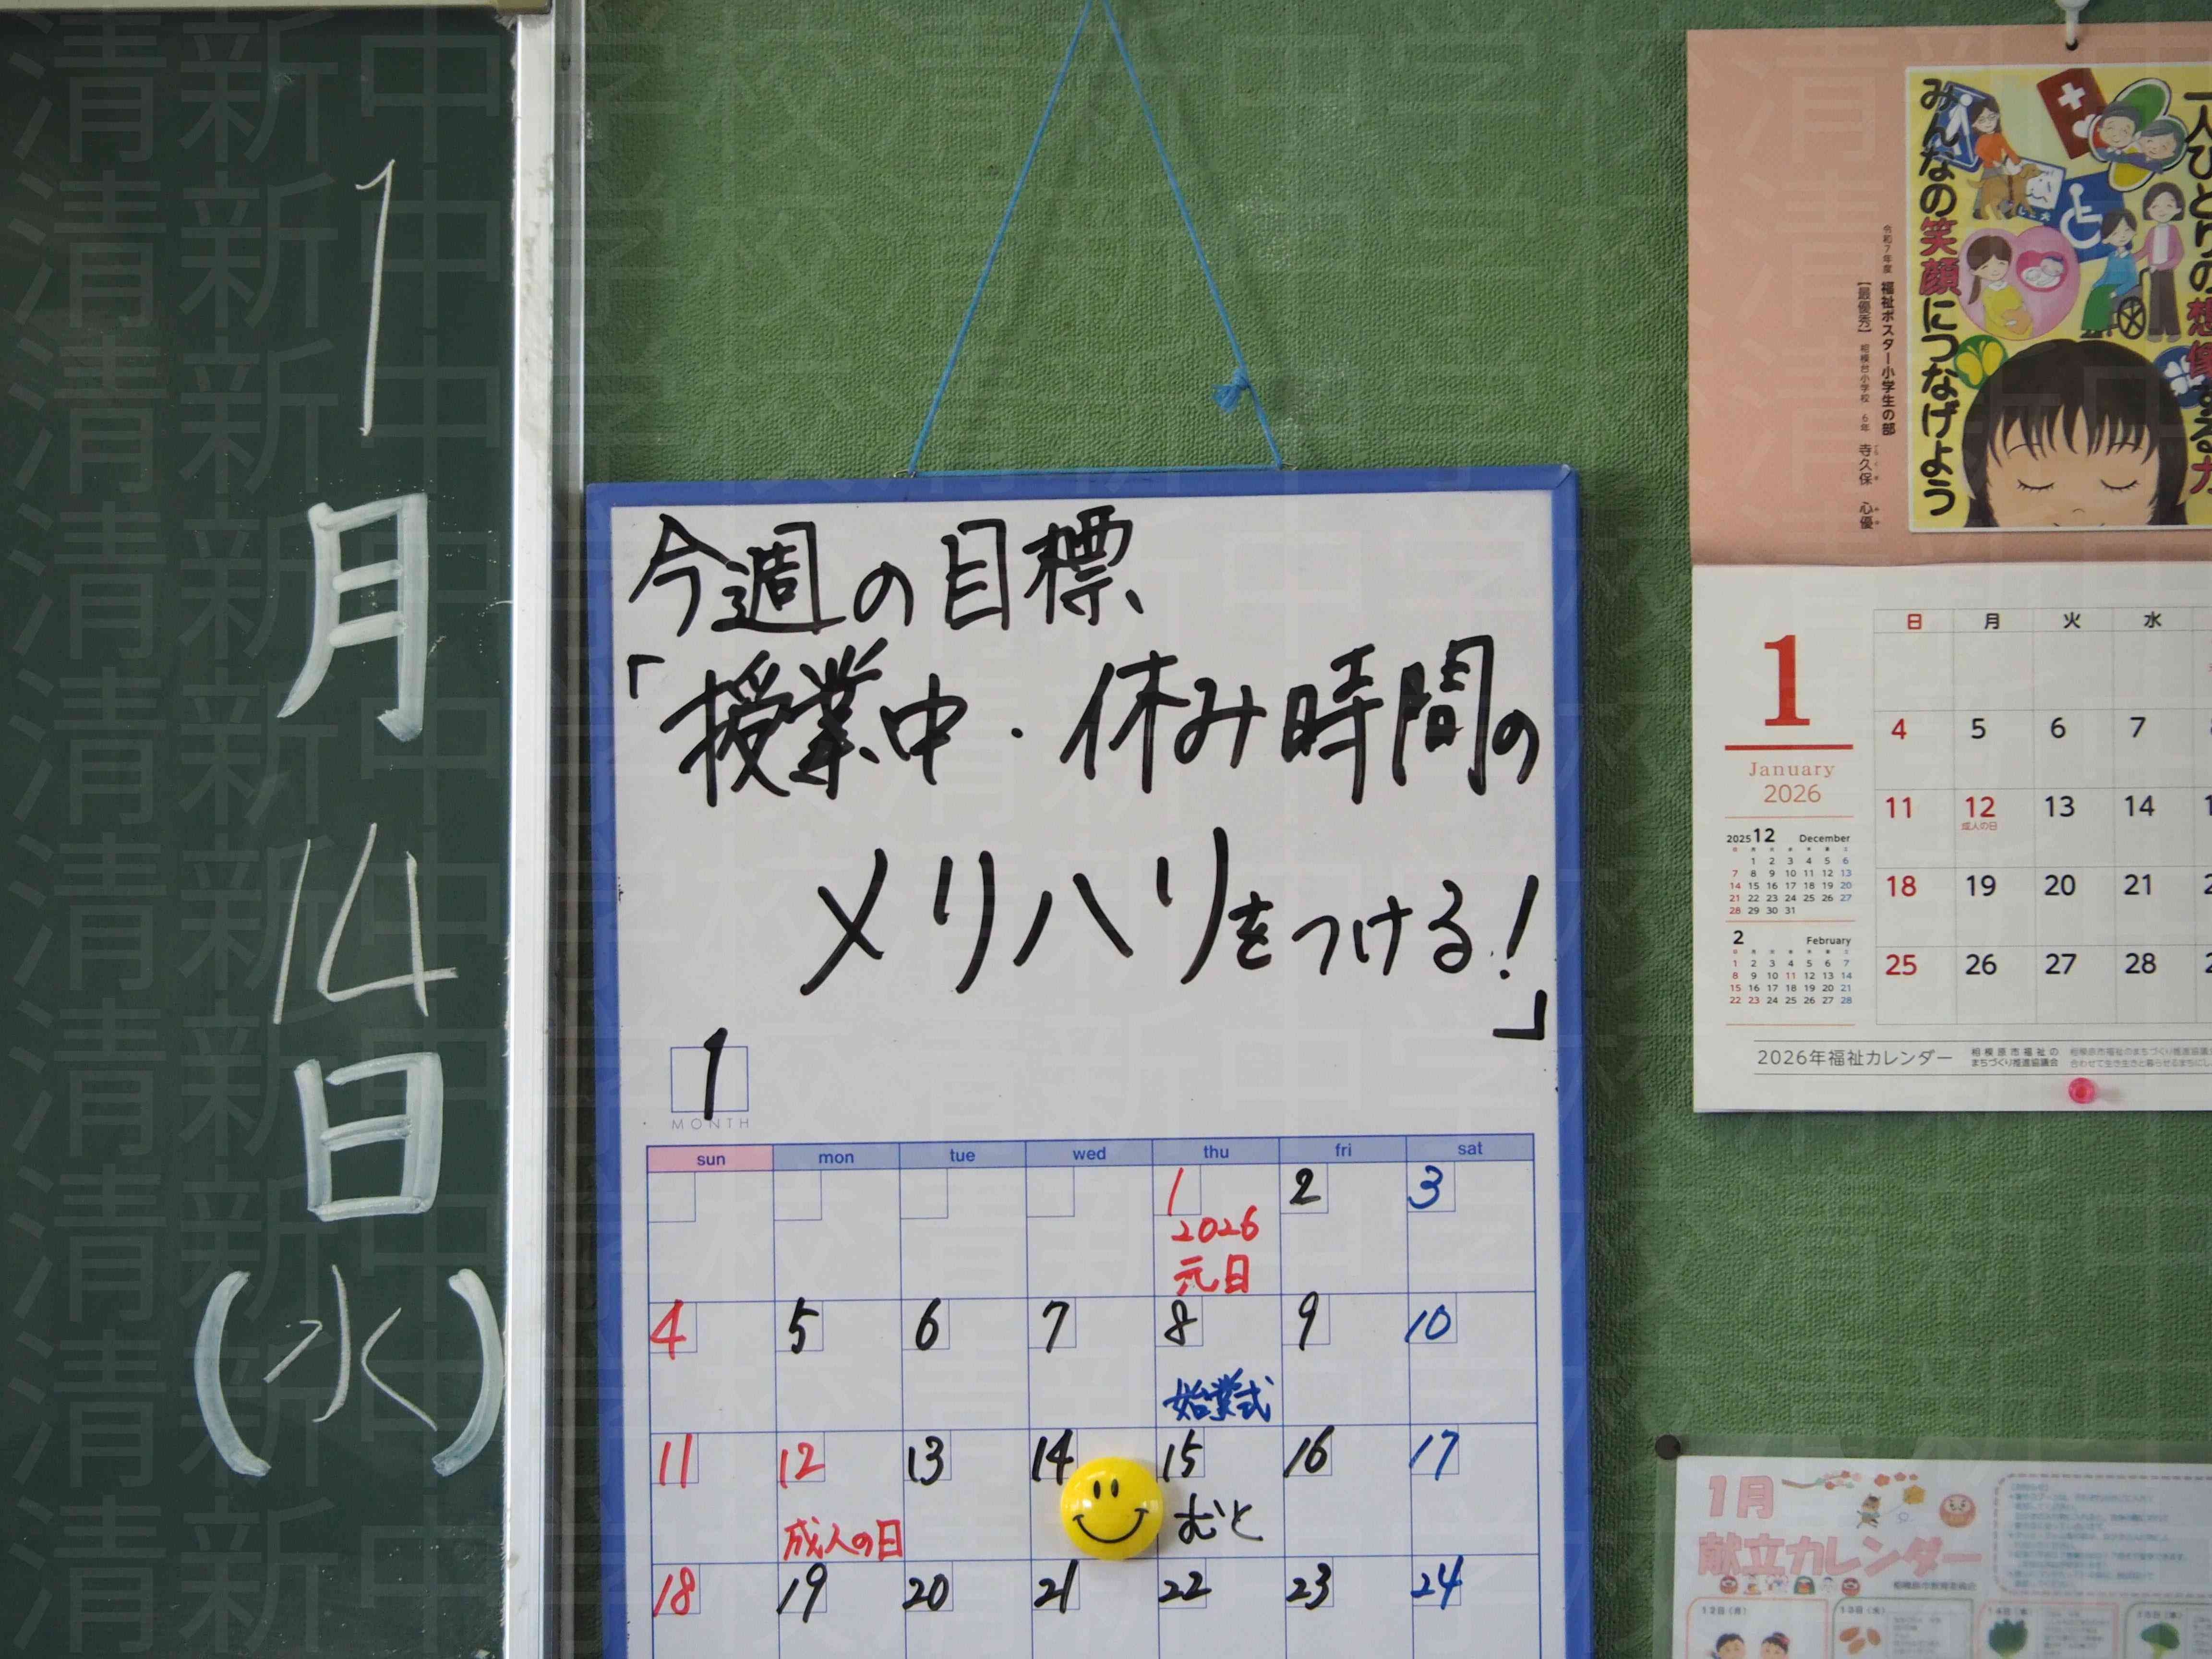 1月14日(水)
今週の目標、
「授業中・休み時間の
メリハリをつける!」
1
MONTH
sun mon tue wed thu fri sat
1 2 3
2026
元日
4 5 6 7 8 9 10
始業式
11 12 13 14 15 16 17
成人の日 むと
18 19 20 21 22 23 24
みんなの笑顔につなげよう
令和7年度 福祉ポスター小学生の部
【最優秀】 相模台小学校 6年 寺久保 心優
1
January
2026
日 月 火 水
4 5 6 7
11 12 13 14
成人の日
18 19 20 21
25 26 27 28
2025 12 December
1 2 3 4 5 6
7 8 9 10 11 12 13
14 15 16 17 18 19 20
21 22 23 24 25 26 27
28 29 30 31
2 February
1 2 3 4 5 6 7
8 9 10 11 12 13 14
15 16 17 18 19 20 21
22 23 24 25 26 27 28
2026年福祉カレンダー
相模原市福祉の
まちづくり推進協議会
1月
献立カレンダー
相模原市教育委員会
12日(月) 13日(火) 14日(水) 15日(木)
清新中学校